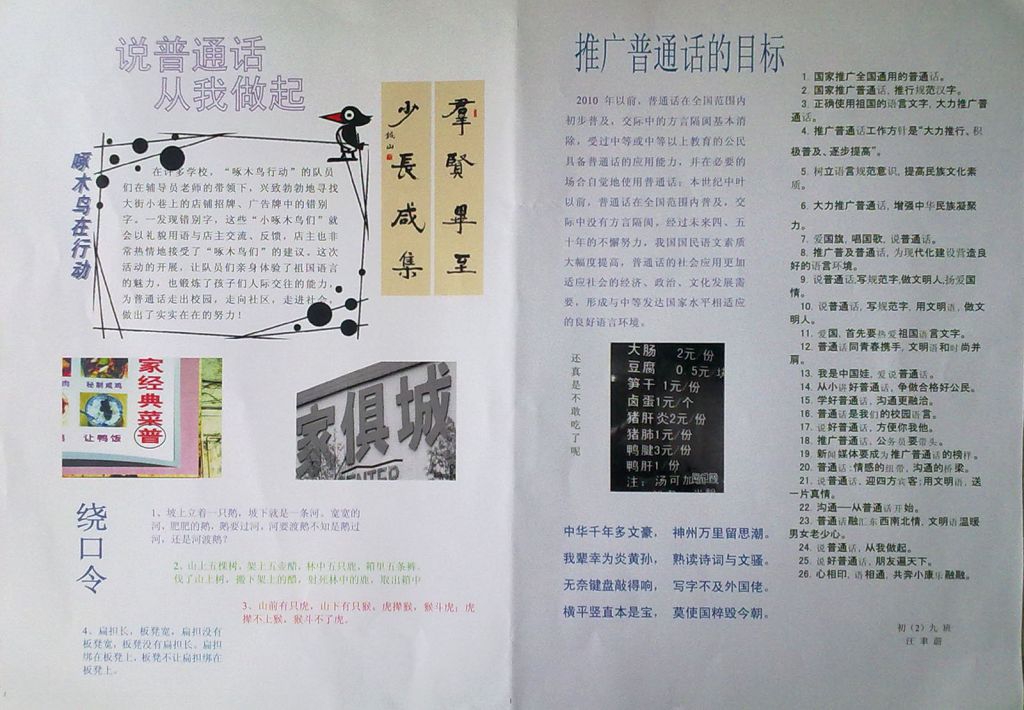 说普通话
从我做起
啄木鸟在行动
在许多学校，“啄木鸟行动”的队员
们在辅导员老师的带领下，兴致勃勃地寻找
大街小巷上的店铺招牌、广告牌中的错别
字。一发现错别字，这些“小啄木鸟们”就
会以礼貌用语与店主交流、反馈，店主也非
常热情地接受了“啄木鸟们”的建议。这次
活动的开展，让队员们亲身体验了祖国语言
的魅力，也锻炼了孩子们人际交往的能力，
为普通话走出校园，走向社区，走进社会，
做出了实实在在的努力！
羣賢畢至
少長咸集
板山
家经典菜普
肉
秘制咸鸡
让鸭饭
家俱城
ENTER
绕口令
1、坡上立着一只鹅，坡下就是一条河。宽宽的
河，肥肥的鹅，鹅要过河，河要渡鹅不知是鹅过
河，还是河渡鹅？
2、山上五棵树，架上五壶醋，林中五只鹿，箱里五条裤。
伐了山上树，搬下架上的醋，射死林中的鹿，取出箱中
3、山前有只虎，山下有只猴。虎撵猴，猴斗虎；虎
撵不上猴，猴斗不了虎。
4、扁担长，板凳宽，扁担没有
板凳宽，板凳没有扁担长。扁担
绑在板凳上，板凳不让扁担绑在
板凳上。
推广普通话的目标
2010 年以前，普通话在全国范围内
初步普及，交际中的方言隔阂基本消
除，受过中等或中等以上教育的公民
具备普通话的应用能力，并在必要的
场合自觉地使用普通话；本世纪中叶
以前，普通话在全国范围内普及，交
际中没有方言隔阂。经过未来四、五
十年的不懈努力，我国国民语文素质
大幅度提高，普通话的社会应用更加
适应社会的经济、政治、文化发展需
要，形成与中等发达国家水平相适应
的良好语言环境。
还真是不敢吃了呢
大肠 2元/份
豆腐 0.5元/块
笋干 1元/份
卤蛋1元/个
猪肝炎2元/份
猪肺1元/份
鸭腱3元/份
鸭肝1/份
注：汤可加
中华千年多文豪， 神州万里留思潮。
我辈幸为炎黄孙， 熟读诗词与文骚。
无奈键盘敲得响， 写字不及外国佬。
横平竖直本是宝， 莫使国粹毁今朝。
1. 国家推广全国通用的普通话。
2. 国家推广普通话，推行规范汉字。
3. 正确使用祖国的语言文字，大力推广普
通话。
4. 推广普通话工作方针是“大力推行、积
极普及、逐步提高”。
5. 树立语言规范意识，提高民族文化素
质。
6. 大力推广普通话，增强中华民族凝聚
力。
7. 爱国旗，唱国歌，说普通话。
8. 推广普及普通话，为现代化建设营造良
好的语言环境。
9. 说普通话，写规范字，做文明人，扬爱国
情。
10. 说普通话，写规范字，用文明语，做文
明人。
11. 爱国，首先要热爱祖国语言文字。
12. 普通话同青春携手，文明语和时尚并
肩。
13. 我是中国娃，爱说普通话。
14. 从小讲好普通话，争做合格好公民。
15. 学好普通话，沟通更融洽。
16. 普通话是我们的校园语言。
17. 说好普通话，方便你我他。
18. 推广普通话，公务员要带头。
19. 新闻媒体要成为推广普通话的榜样。
20. 普通话：情感的纽带，沟通的桥梁。
21. 说普通话，迎四方宾客；用文明语，送
一片真情。
22. 沟通—从普通话开始。
23. 普通话融汇东西南北情，文明语温暖
男女老少心。
24. 说普通话，从我做起。
25. 说好普通话，朋友遍天下。
26. 心相印，语相通，共奔小康乐融融。
初（2）九 班
汪聿蔚